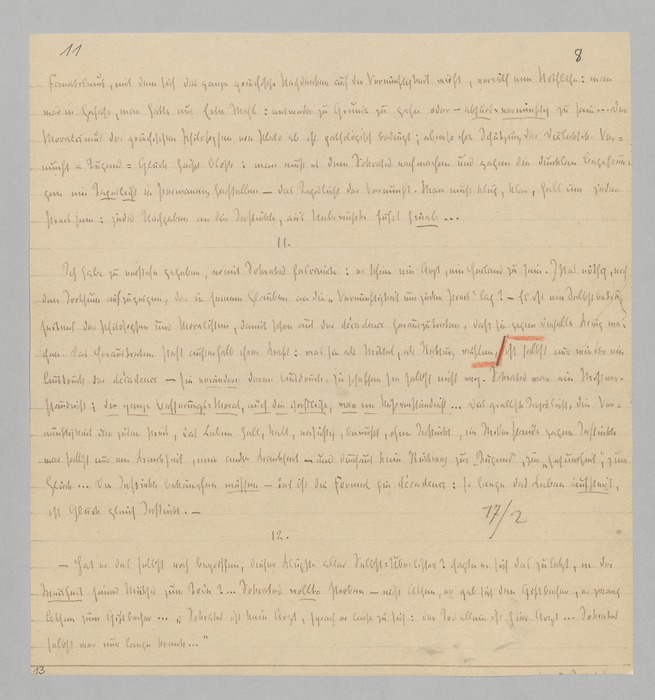 11 8
Fanatismus, mit dem sich das ganze griechische Nachdenken auf die Vernünftigkeit wirft, verräth eine Nothlage: man
war in Gefahr, man hatte nur Eine Wahl: entweder zu Grunde zu gehen oder – absurd-vernünftig zu sein... Der
Moralismus der griechischen Philosophen von Plato ab ist pathologisch bedingt; ebenso ihre Schätzung der Dialektik. Ver-
nunft = Tugend = Glück heißt bloß: man muß es dem Sokrates nachmachen und gegen die dunklen Begehrun-
gen ein Tageslicht in Permanenz herstellen – das Tageslicht der Vernunft. Man muß klug, klar, hell um jeden
Preis sein: jedes Nachgeben an die Instinkte, an's Unbewußte führt hinab...
11.
Ich habe zu verstehn gegeben, womit Sokrates fascinirte: er schien ein Arzt, ein Heiland zu sein. Ist es nöthig, noch
den Irrthum aufzuzeigen, der in seinem Glauben an die „Vernünftigkeit um jeden Preis“ lag? – Es ist ein Selbstbetrug
seitens der Philosophen und Moralisten, damit schon aus der décadence herauszutreten, daß sie gegen dieselbe Krieg ma-
chen. Das Heraustreten steht außerhalb ihrer Kraft: was sie als Mittel, als Rettung wählen, ist selbst nur wieder ein
Ausdruck der décadence – sie verändern deren Ausdruck, sie schaffen sie selbst nicht weg. Sokrates war ein Mißver-
ständniß; die ganze Besserungs-Moral, auch die christliche, war ein Mißverständniß... Das grellste Tageslicht, die Ver-
nünftigkeit um jeden Preis, das Leben hell, kalt, vorsichtig, bewußt, ohne Instinkt, im Widerstand gegen Instinkte
war selbst nur eine Krankheit, eine andre Krankheit – und durchaus kein Rückweg zur „Tugend“, zur „Gesundheit“, zum
Glück... Die Instinkte bekämpfen müssen – das ist die Formel für décadence: so lange das Leben aufsteigt,
ist Glück gleich Instinkt. –
17/2
12.
– Hat er das selbst noch begriffen, dieser Klügste aller Selbst-Überlister? Sagte er sich das zuletzt, in der
Weisheit seines Muthes zum Tode?... Sokrates wollte sterben – nicht Athen, er gab sich den Giftbecher, er zwang
Athen zum Giftbecher... „Sokrates ist kein Arzt, sprach er leise zu sich: der Tod allein ist hier Arzt... Sokrates
selbst war nur lange krank...“
13